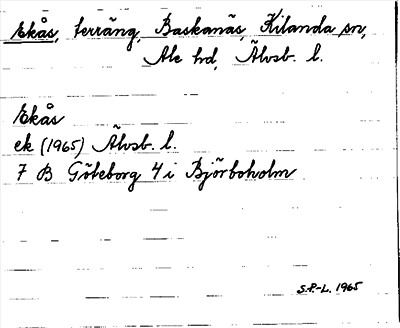 Ekås, terräng, Baskanäs, Kilanda sn,
Ale hd, Älvsb. l.
Ekås
ek (1965) Älvsb. l.
7 B Göteborg 4 i Björboholm
S.P.-L. 1965